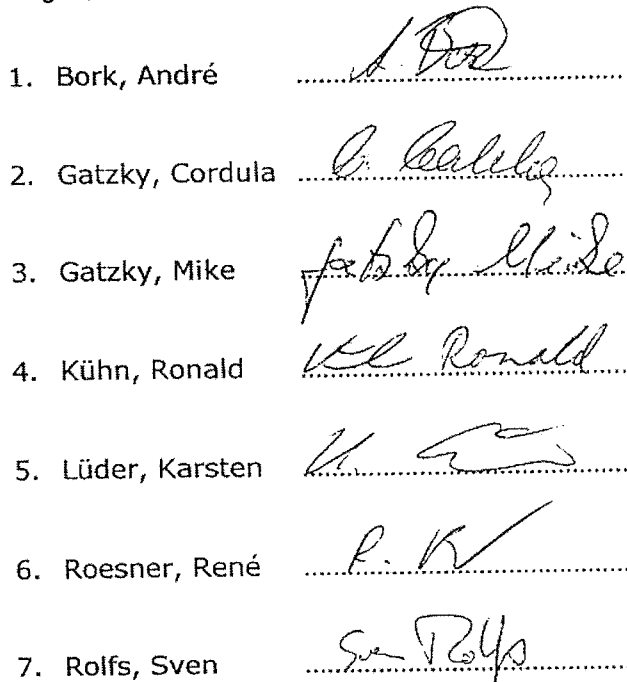 1. Bork, André A. Bork
2. Gatzky, Cordula C. Gatzky
3. Gatzky, Mike Gatzky Mike
4. Kühn, Ronald Ronald
5. Lüder, Karsten K.
6. Roesner, René R.
7. Rolfs, Sven Sven Rolfs